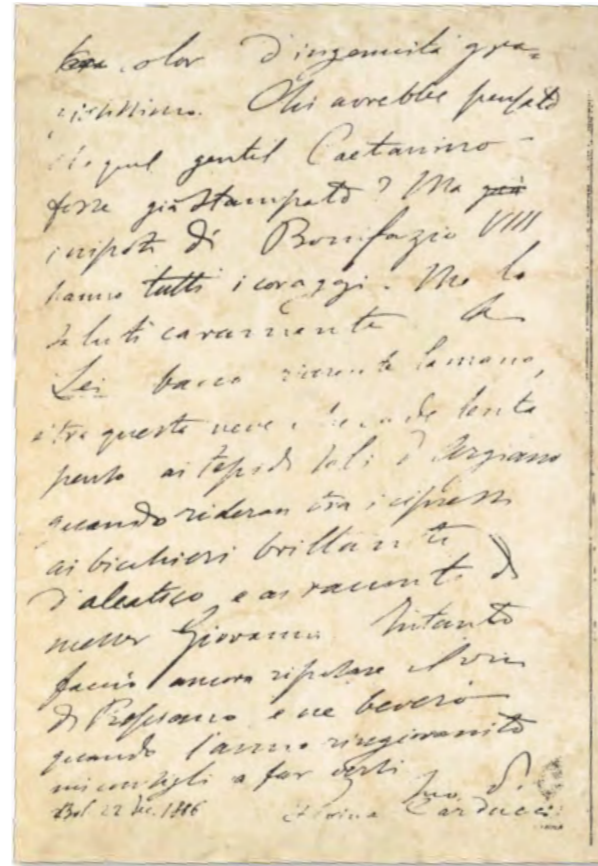 color d'ingenuità gra-
ziosissimo. Chi avrebbe pensato
che quel gentil Caetanino
fosse già stampato? Ma già
i nipoti di Bonifazio VIII
hanno tutti i coraggi. Me lo
saluti caramente. A
Lei bacio riverente la mano,
e tra questa neve che cade lenta
penso ai tepidi soli d'
quando rideran tra i cipressi
ai bicchieri brillanti
d'aleatico e ai racconti di
messer Giovanni. Intanto
faccio ancora riposare il vin
di e ne beverò
quando l'anno ringiovanito
mi consigli a far versi
Bol. 22 dic. 1886 Suo
Carducci